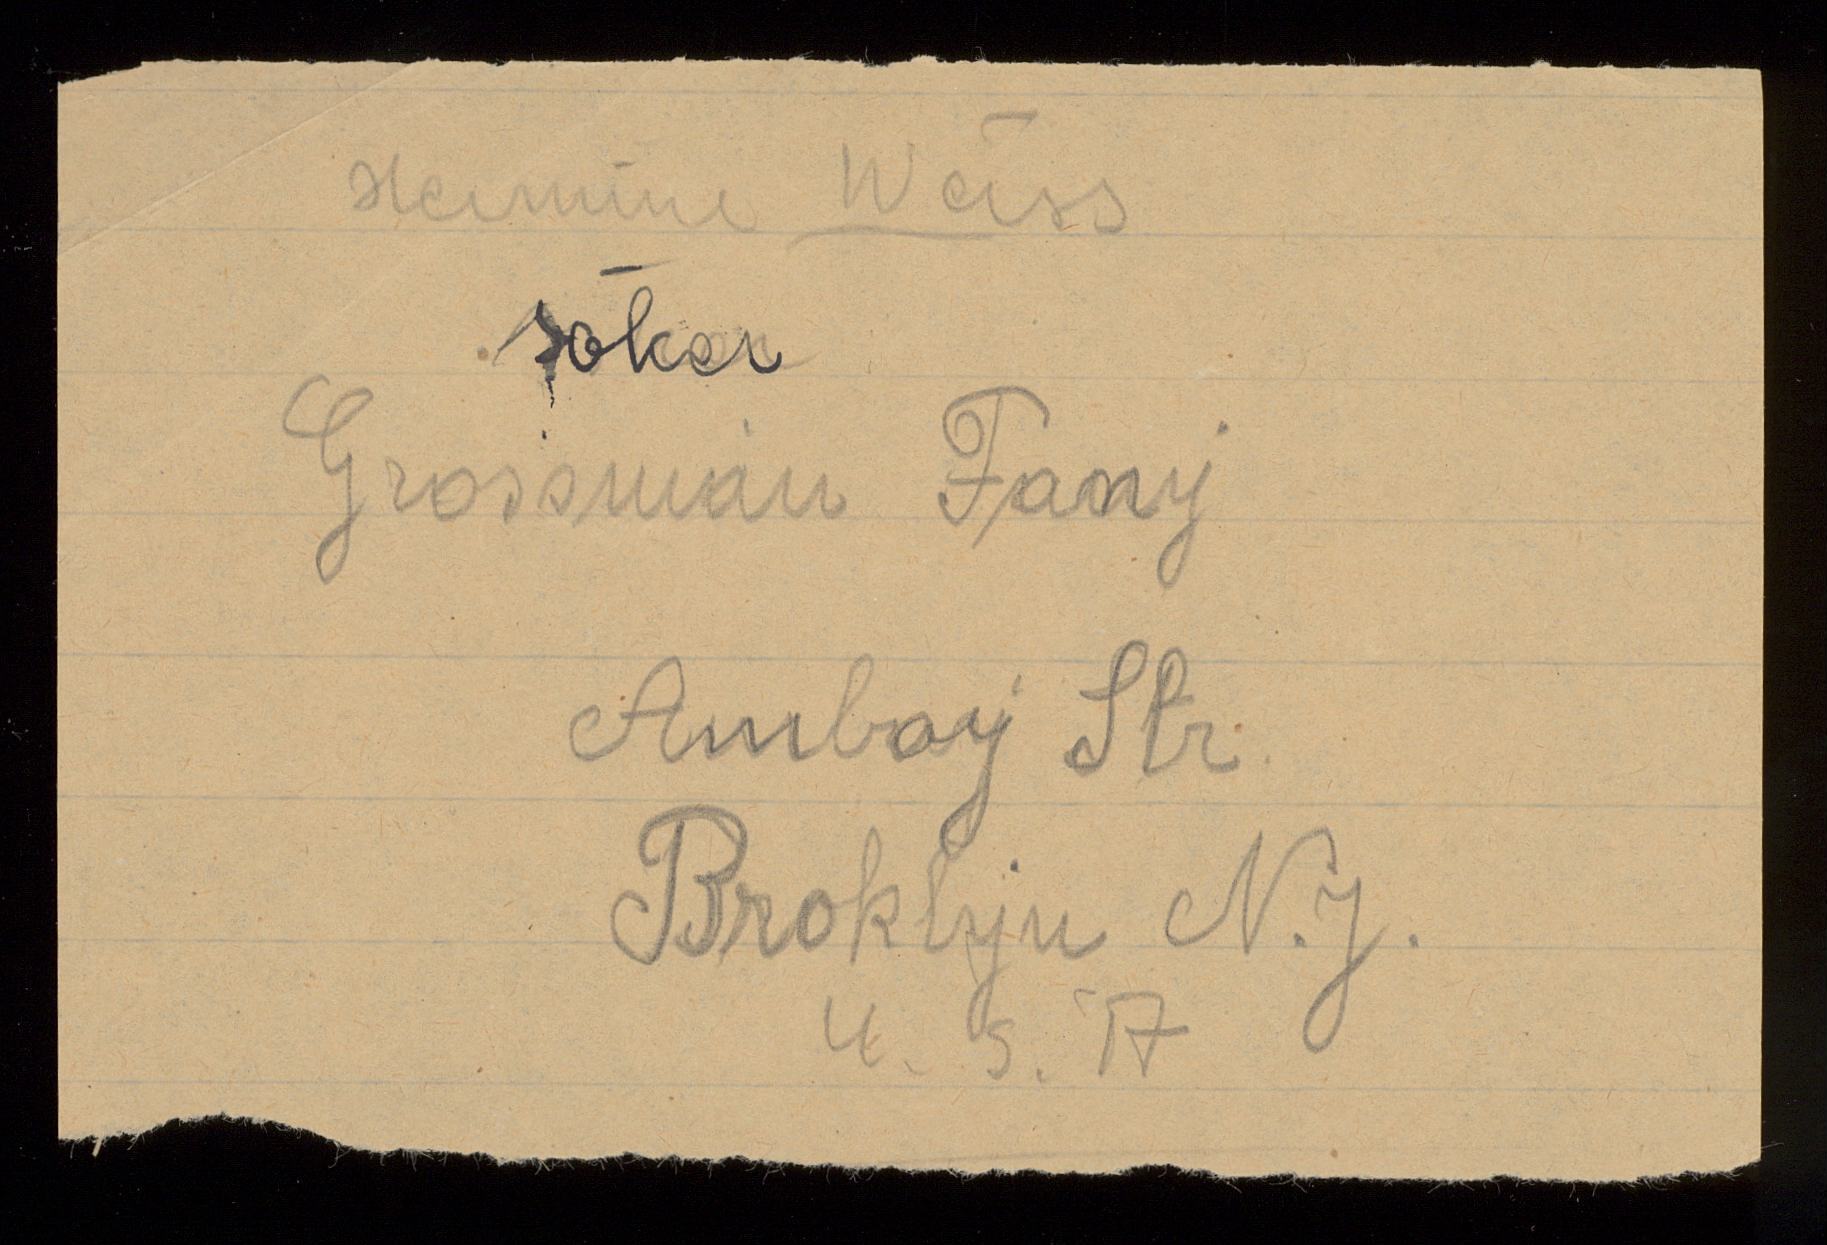 Hermine Weiss
söker
Grossmán Fany
Amboy Str.
Broklyn N.Y.
U. S. A